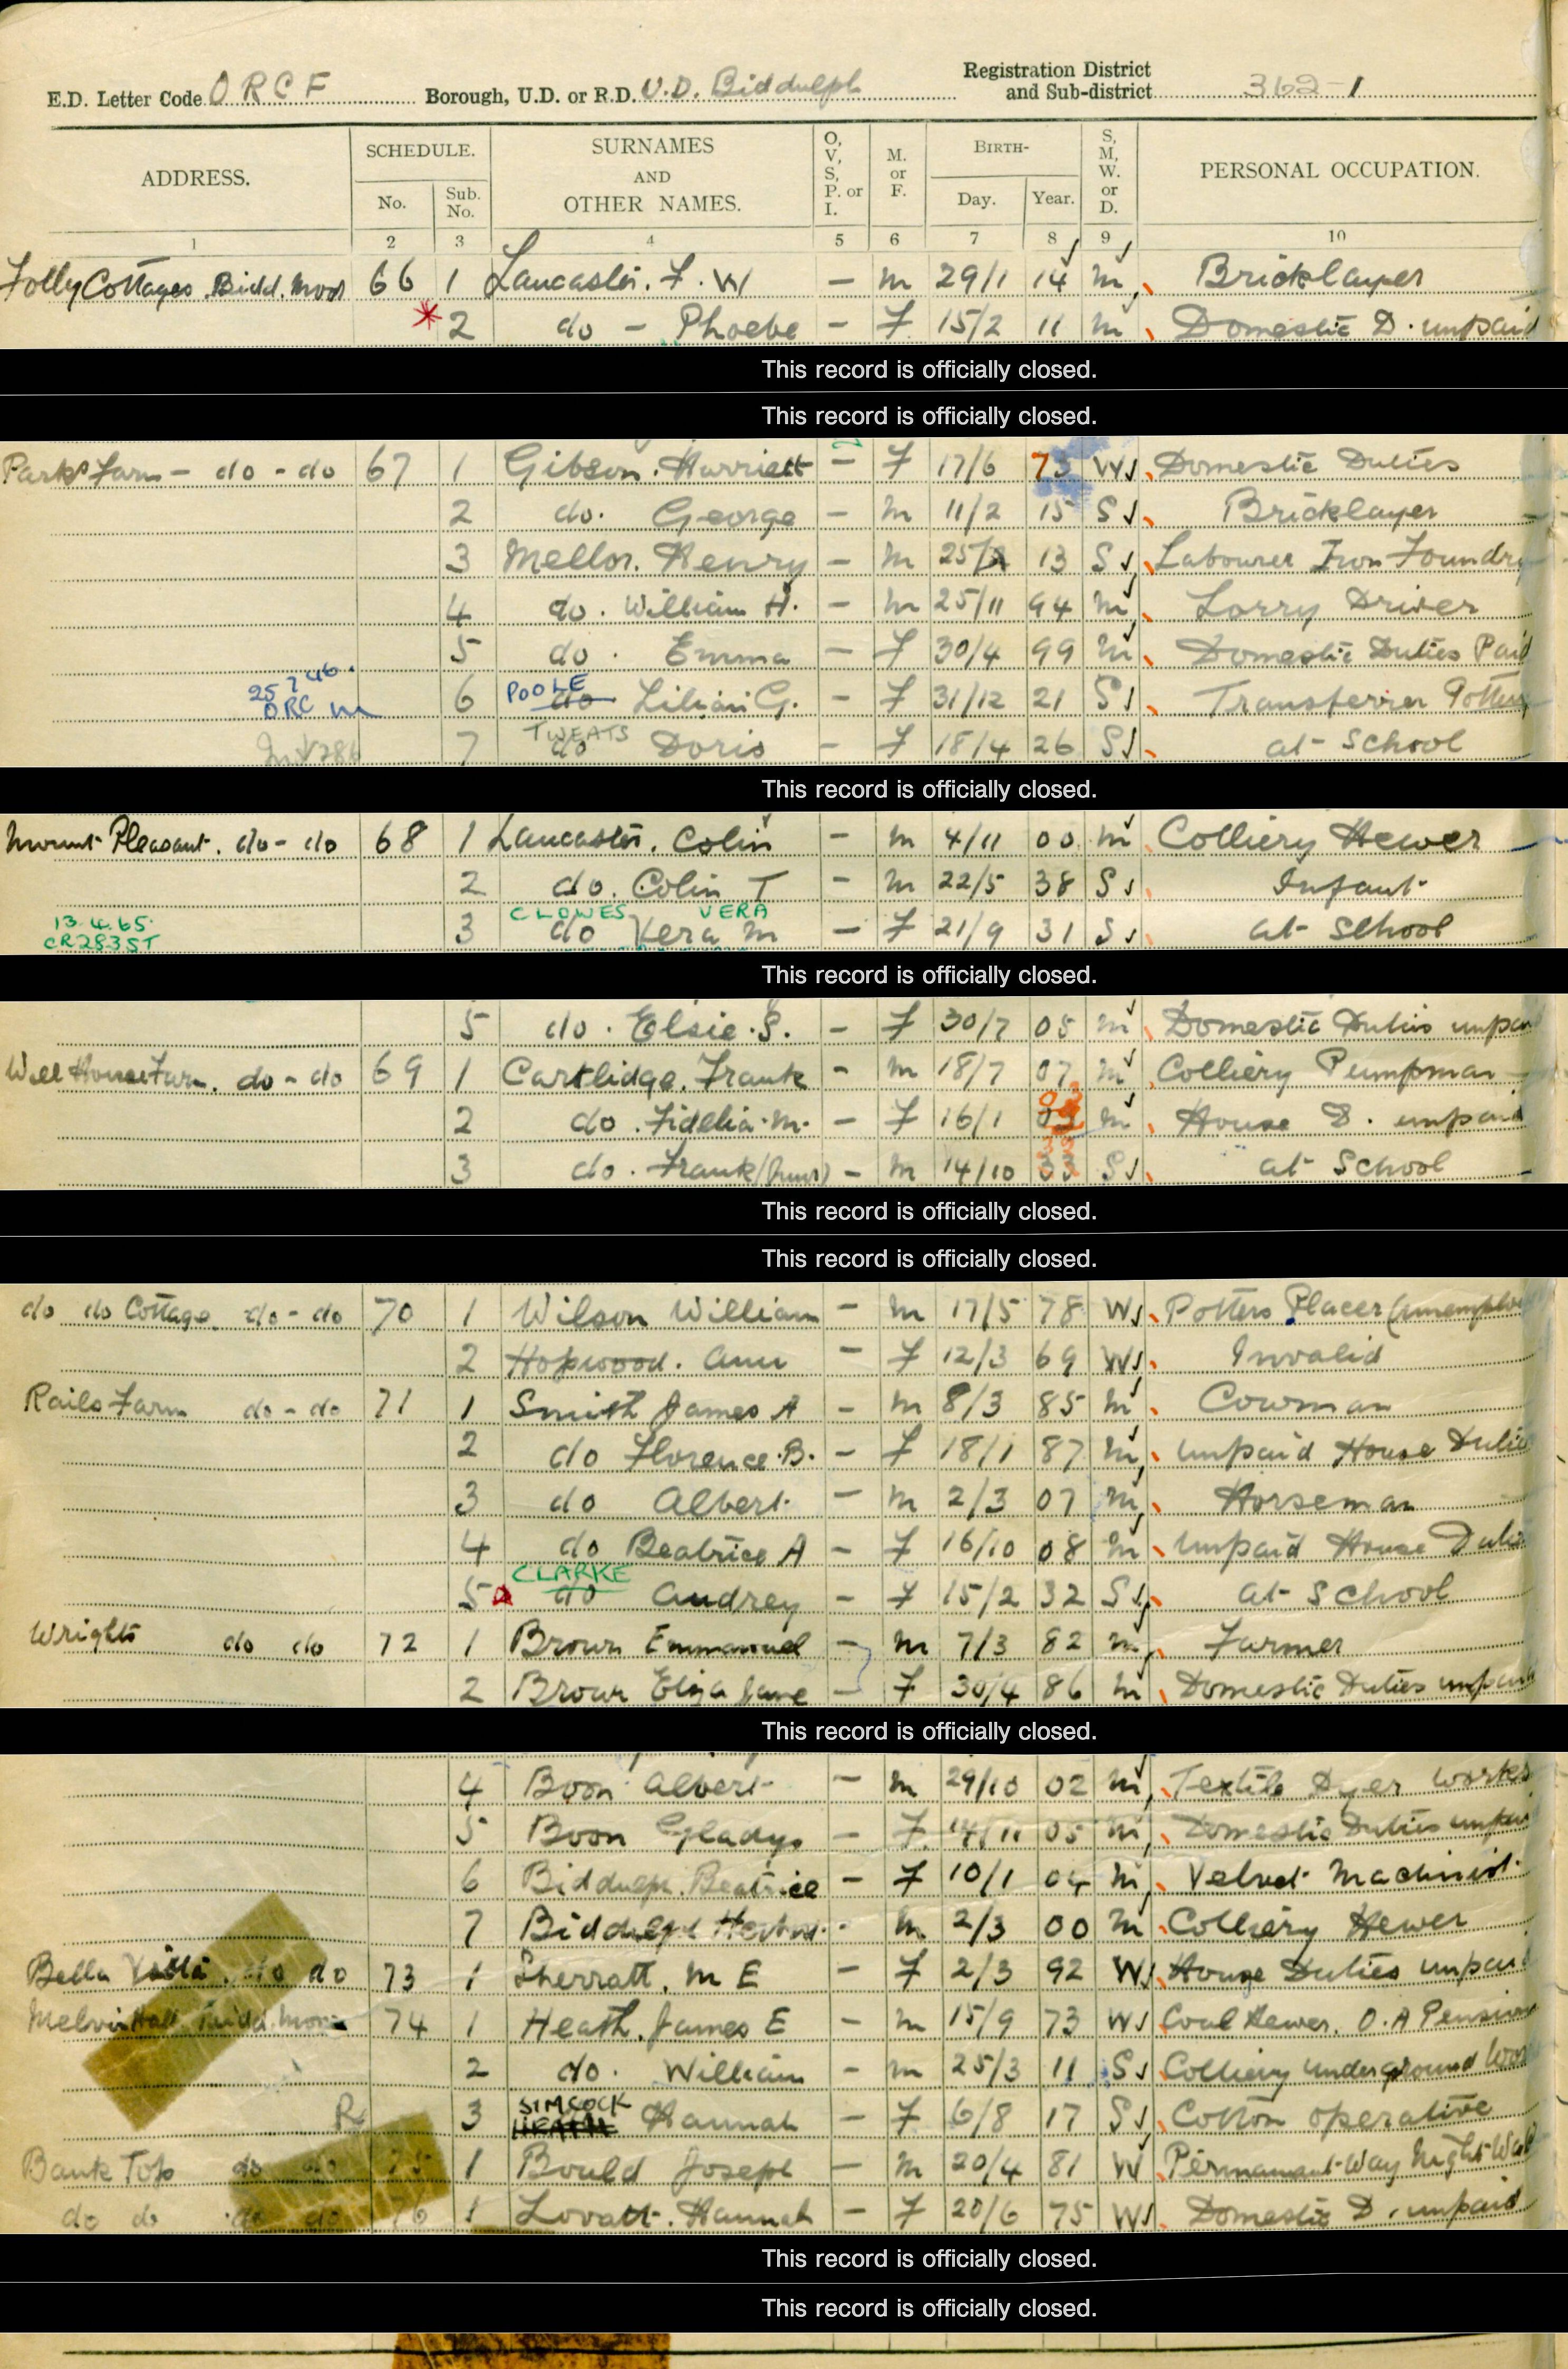 E.D. Letter Code O R C F Borough, U.D. or R.D. U.D. Biddulph Registration District and Sub-district 362-1
ADDRESS. SCHEDULE. No. Sub. No. SURNAMES AND OTHER NAMES. O, V, S, P. or I. M. or F. BIRTH- Day. Year. S, M, W. or D. PERSONAL OCCUPATION.
1 2 3 4 5 6 7 8 9 10
Folly Cottages. Bidd. Moor 66 1 Lancaster. F. W - M 29/1 14 M Bricklayer
2 do - Phoebe - F 15/2 11 M Domestic D. unpaid
This record is officially closed.
This record is officially closed.
Parks Farm - do - do 67 1 Gibson. Harriett - F 17/6 73 W Domestic Duties
2 do. George - M 11/2 15 S Bricklayer
3 Mellor. Henry - M 25/ 13 S Labourer Iron Foundry
4 do. William H. - M 25/11 94 M Lorry Driver
5 do. Emma - F 30/4 99 M Domestic Duties Paid
25 7 46. ORC M 6 POOLE do Lilian G. - F 31/12 21 S Transferrer Pottery
7 TWEATS do Doris - F 18/4 26 S at School
This record is officially closed.
Mount Pleasant. do - do 68 1 Lancaster. Colin - M 4/11 00 M Colliery Hewer
2 do. Colin T - M 22/5 38 S Infant
13.4.65. CR283ST 3 CLOWES VERA do Vera M - F 21/9 31 S at School
This record is officially closed.
5 do. Elsie. S. - F 30/7 05 M Domestic Duties unpaid
Well House Farm. do - do 69 1 Cartlidge. Frank - M 18/7 07 M Colliery Pumpman
2 do. Fidelia. M. - F 16/1 03 M House D. unpaid
3 do. Frank (Junr) - M 14/10 33 S at School
This record is officially closed.
This record is officially closed.
do do Cottage do - do 70 1 Wilson William - M 17/5 78 W Potters Placer (unemployed
2 Hopwood. Ann - F 12/3 69 W Invalid
Rails Farm do - do 71 1 Smith James A - M 8/3 85 M Cowman
2 do Florence. B. - F 18/1 87 M unpaid House Duties
3 do Albert - M 2/3 07 M Horseman
4 do Beatrice A - F 16/10 08 M unpaid House Duties
5 CLARKE do Audrey - F 15/2 32 S at School
Wrights do do 72 1 Brown Emmanuel - M 7/3 82 M Farmer
2 Brown Eliza Jane - F 30/4 86 M Domestic Duties unpaid
This record is officially closed.
4 Boon Albert - M 29/10 02 M Textile Dyer Works
5 Boon Gladys - F 14/11 05 M Domestic Duties unpaid
6 Biddulph. Beatrice - F 10/1 04 M Velvet Machinist.
7 Biddulph - M 2/3 00 M Colliery Hewer
Bella Villa. do do 73 1 Sherratt. M E - F 2/3 92 W House Duties unpaid
Melvin Hall. Bidd. Moor 74 1 Heath. James E - M 15/9 73 W Coal Hewer. O. A Pension
2 do. William - M 25/3 11 S Colliery underground
R 3 SIMCOCK HEATH Hannah - F 6/8 17 S Cotton operative
Bank Top do do 75 1 Bould Joseph - M 20/4 81 W Permanant Way Night
do do do do 76 1 Lovatt. Hannah - F 20/6 75 W Domestic D. unpaid
This record is officially closed.
This record is officially closed.